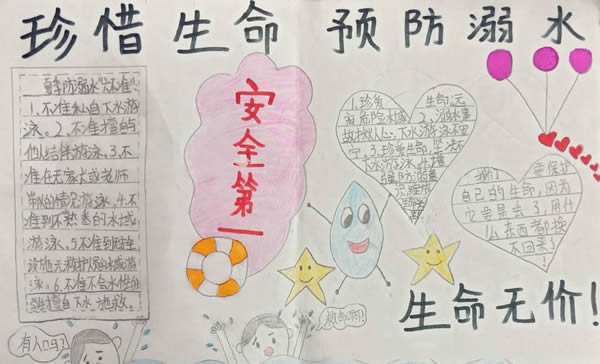 珍惜生命 预防溺水
夏季防溺水"六不准"
1.不准私自下水游
泳。2.不准擅自与
他人结伴游泳。3.不
准在无家长或老师
带的情况游泳。4.不
准到不熟悉的水域
游泳。5.不准到
设施无救护人员的水域游
泳。6.不准不会水性的
学生擅自下水 救。
安全第一
1.珍爱 生命远
离危险水域 2.溺水事
故揪人心，下水游泳不
3.珍惜生命
我们 要保护
自己的生命，因为
它要是丢了，用什
么东西都换
不回来了！
生命无价！
有人吗？
救命啊！